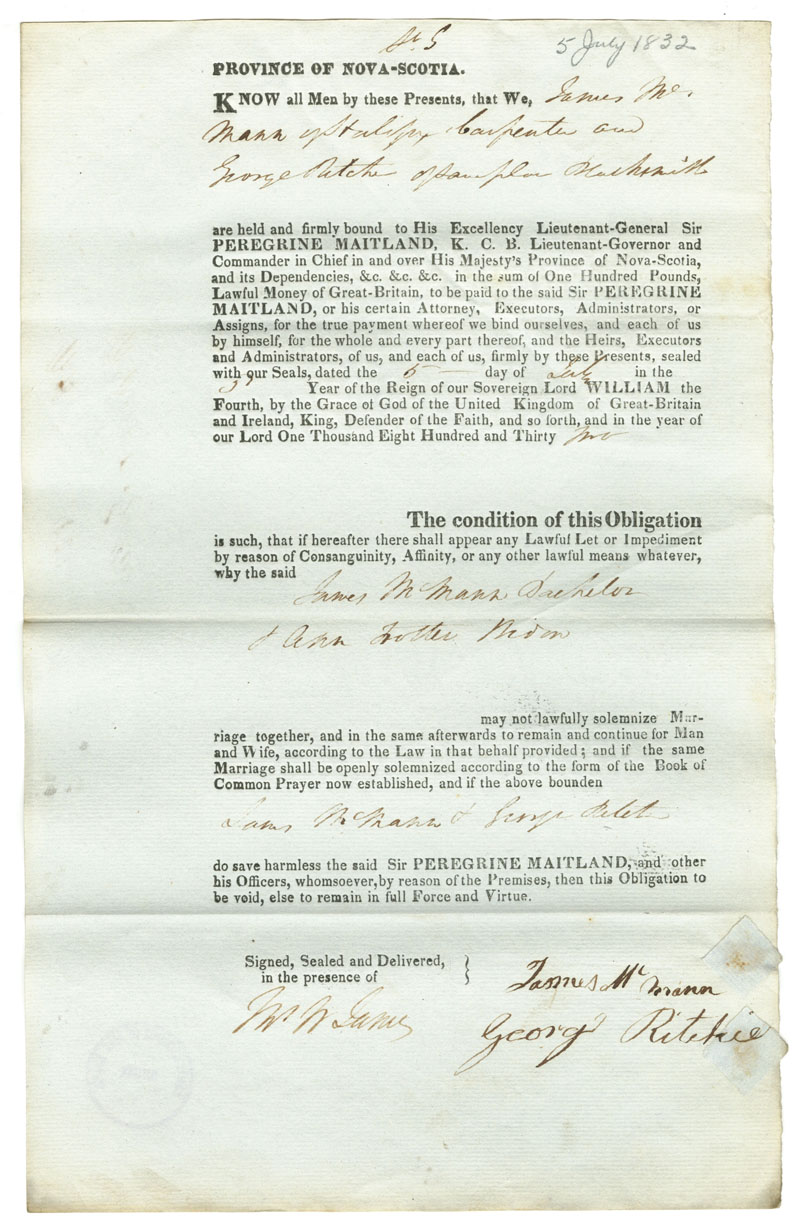 5 July 1832
PROVINCE OF NOVA-SCOTIA.
KNOW all Men by these Presents, that We, James Mc
Mann of Halifax Carpenter and
George Ritchie of same place Blacksmith
are held and firmly bound to His Excellency Lieutenant-General Sir
PEREGRINE MAITLAND, K. C. B. Lieutenant-Governor and
Commander in Chief in and over His Majesty's Province of Nova-Scotia,
and its Dependencies, &c. &c. &c. in the sum of One Hundred Pounds,
Lawful Money of Great-Britain, to be paid to the said Sir PEREGRINE
MAITLAND, or his certain Attorney, Executors, Administrators, or
Assigns, for the true payment whereof we bind ourselves, and each of us
by himself, for the whole and every part thereof, and the Heirs, Executors
and Administrators, of us, and each of us, firmly by these Presents, sealed
with our Seals, dated the 5 day of July in the
3d Year of the Reign of our Sovereign Lord WILLIAM the
Fourth, by the Grace of God of the United Kingdom of Great-Britain
and Ireland, King, Defender of the Faith, and so forth, and in the year of
our Lord One Thousand Eight Hundred and Thirty two
The condition of this Obligation
is such, that if hereafter there shall appear any Lawful Let or Impediment
by reason of Consanguinity, Affinity, or any other lawful means whatever,
why the said
James McMann Bachelor
& Ann Trotter Widow
may not lawfully solemnize Mar-
riage together, and in the same afterwards to remain and continue for Man
and Wife, according to the Law in that behalf provided; and if the same
Marriage shall be openly solemnized according to the form of the Book of
Common Prayer now established, and if the above bounden
James McMann & George Ritchie
do save harmless the said Sir PEREGRINE MAITLAND, and other
his Officers, whomsoever, by reason of the Premises, then this Obligation to
be void, else to remain in full Force and Virtue.
Signed, Sealed and Delivered,
in the presence of
James Mc Mann
George Ritchie